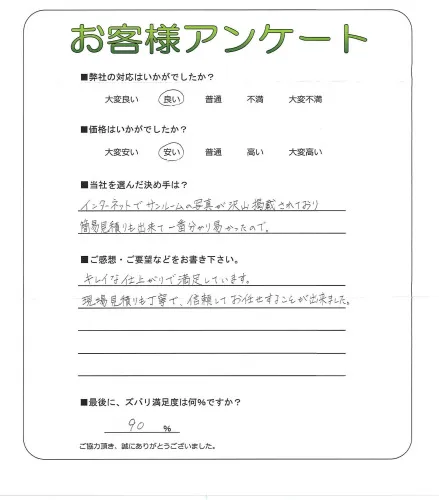 お客様アンケート
■弊社の対応はいかがでしたか?
大変良い 良い 普通 不満 大変不満
■価格はいかがでしたか?
大変安い 安い 普通 高い 大変高い
■当社を選んだ決め手は?
インターネットでサンルームの写真が沢山掲載されており
簡易見積りも出来て一番分かり易かったので。
■ご感想・ご要望などをお書き下さい。
キレイな仕上がりで満足しています。
現場見積りも丁寧で、信頼してお任せすることが出来ました。
■最後に、ズバリ満足度は何%ですか?
90 %
ご協力頂き、誠にありがとうございました。